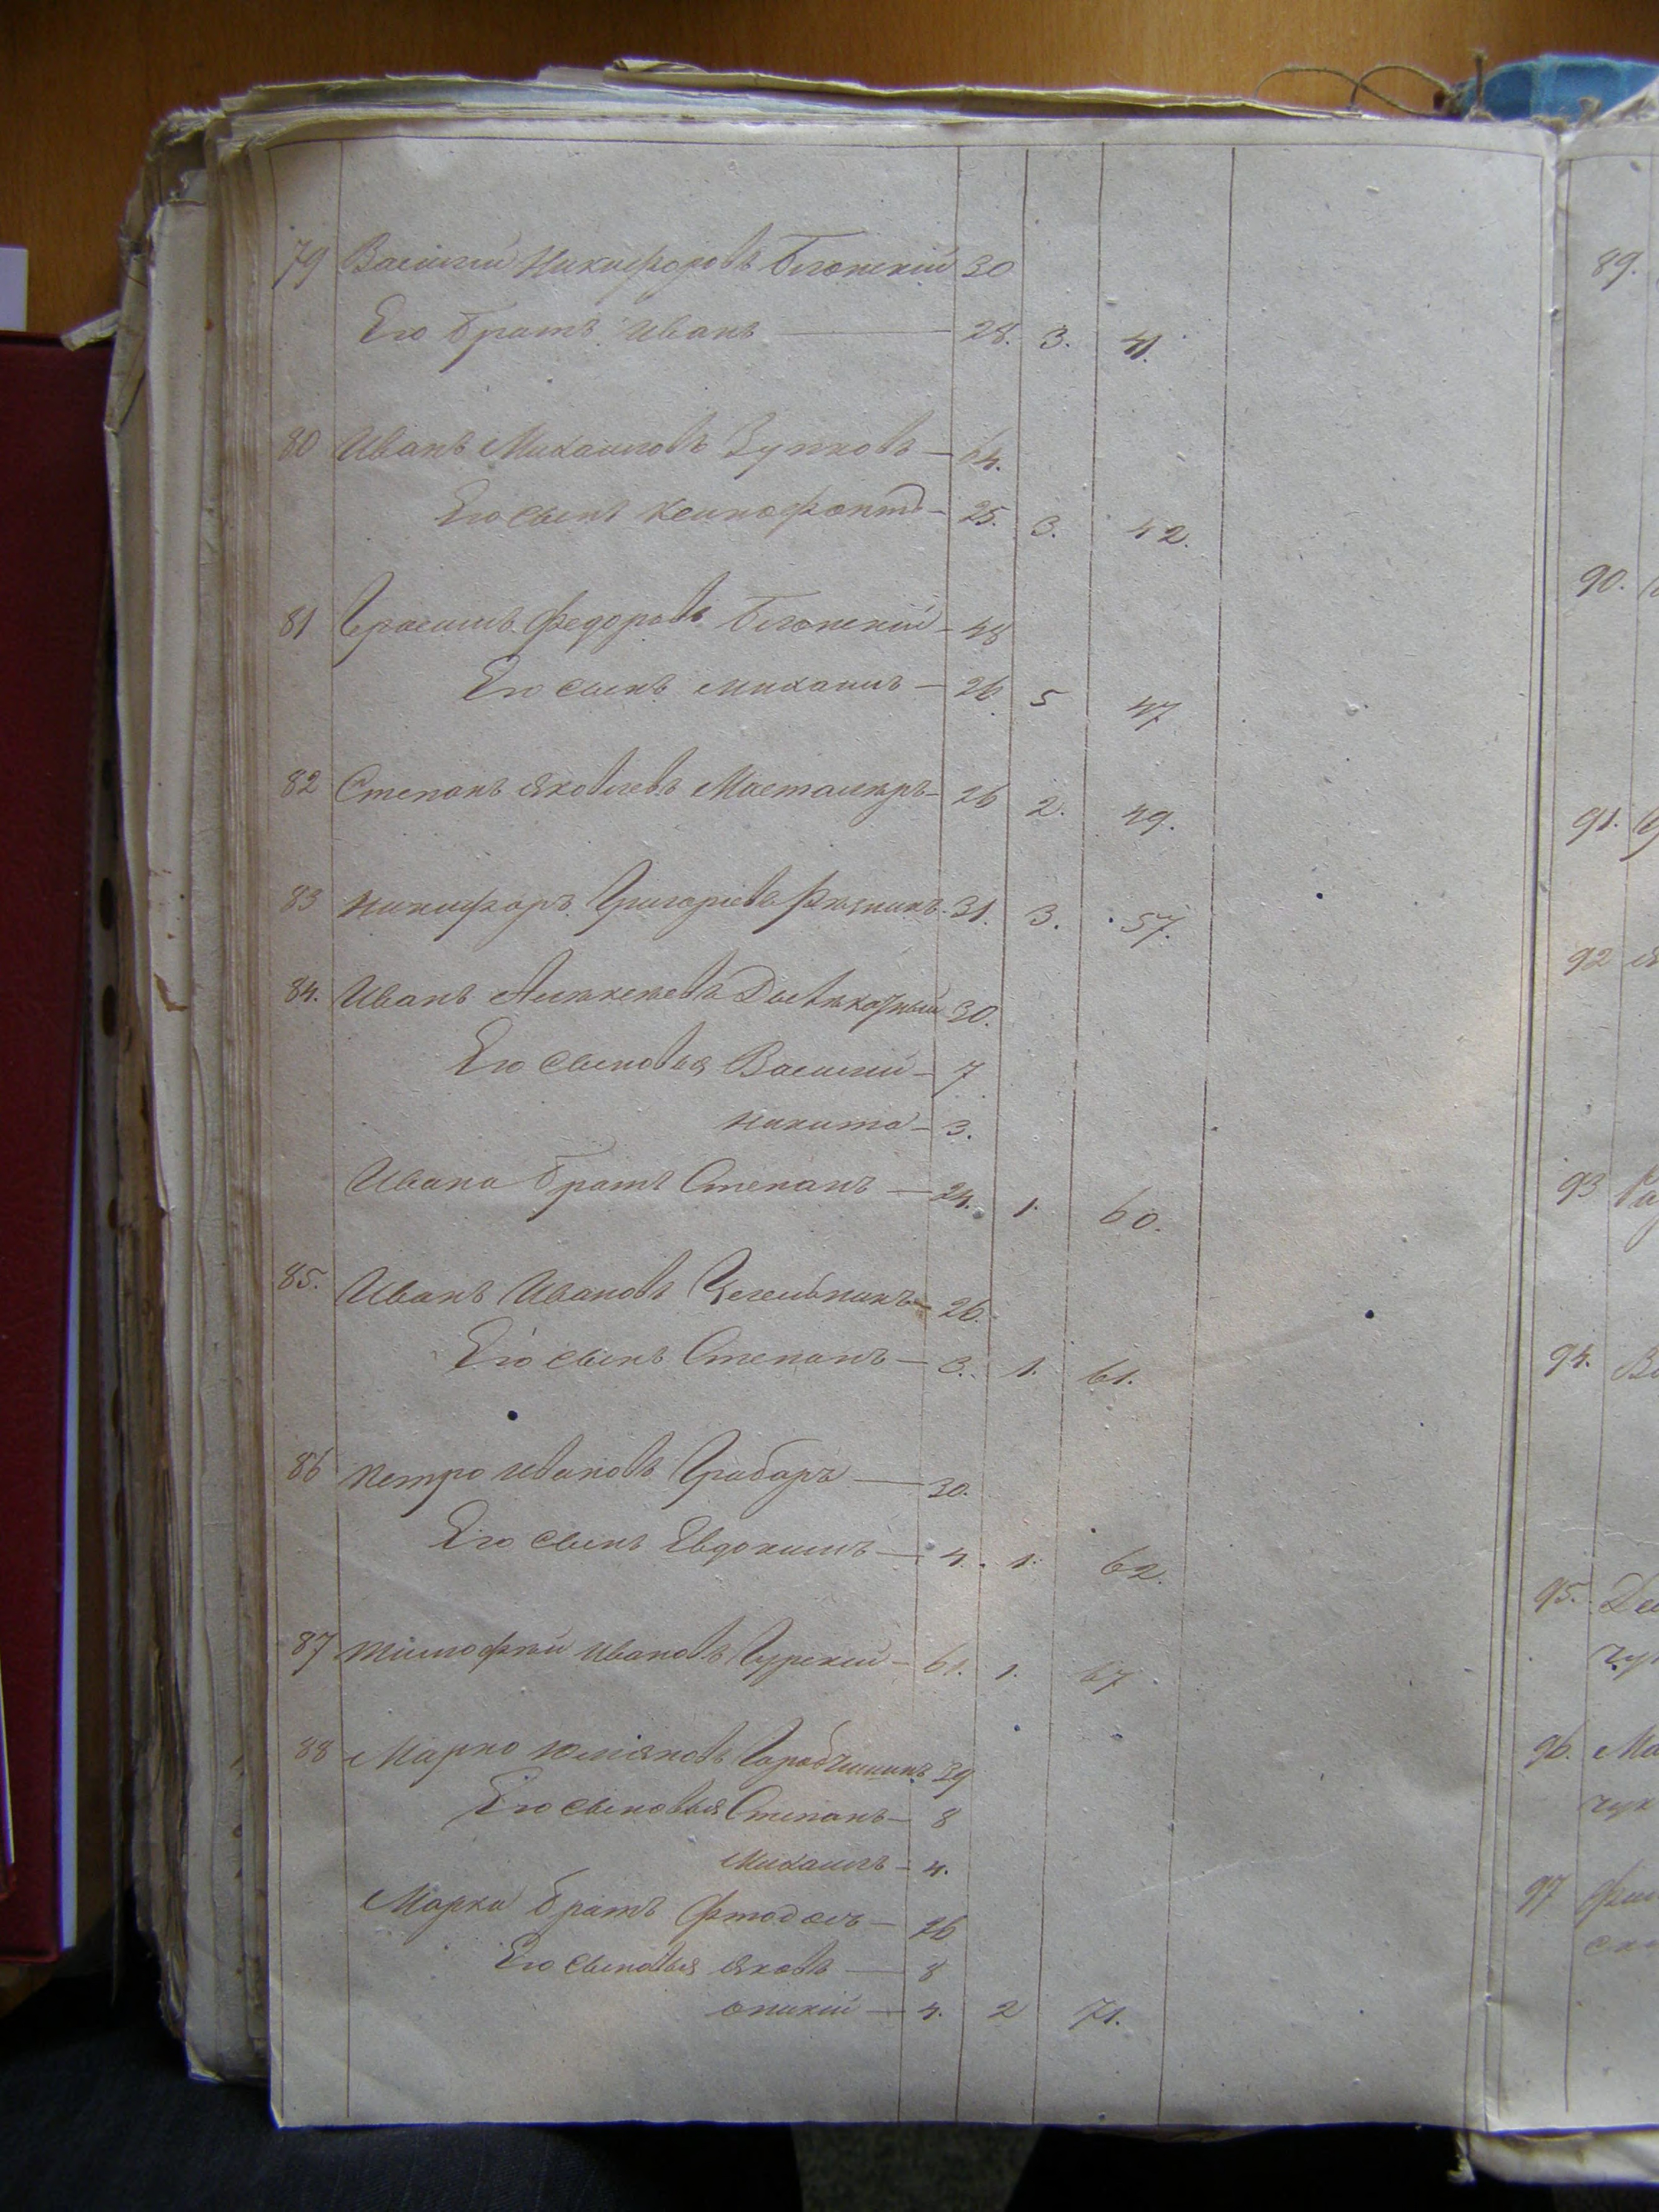 79 Василий Никифоровъ Блонский 30
Его братъ Иванъ — 28. 3. 41.
80 Иванъ Михайловъ Зупковъ — 64.
Его сынъ Ксинофонтъ — 25. 3. 42.
81 Герасимъ Федоровъ Блонский — 48
Его сынъ Михаилъ — 26 5 47
82 Степанъ Яковлевъ — 26 2. 49.
83 Никифоръ Григорiевъ 31. 3. 57.
84. Иванъ 30.
Его сыновья Василий — 7
Никита — 3.
Ивана братъ Степанъ — 24. 1. 60.
85. Иванъ Ивановъ — 26.
Его сынъ Степанъ — 3. 1. 61.
86 Петро Ивановъ Грабаръ — 30.
Его сынъ Евдокимъ — 4. 1. 62.
87 Тимофей Ивановъ Гурский — 61. 1. 67
88 Марко 39
Его сыновья Степанъ — 8
Михаилъ — 4.
Марка братъ — 26
Его сыновья Яковъ — 8
— 4. 2 71.
89.
90.
91.
92
93
94.
95.
96. Ма
чук
97